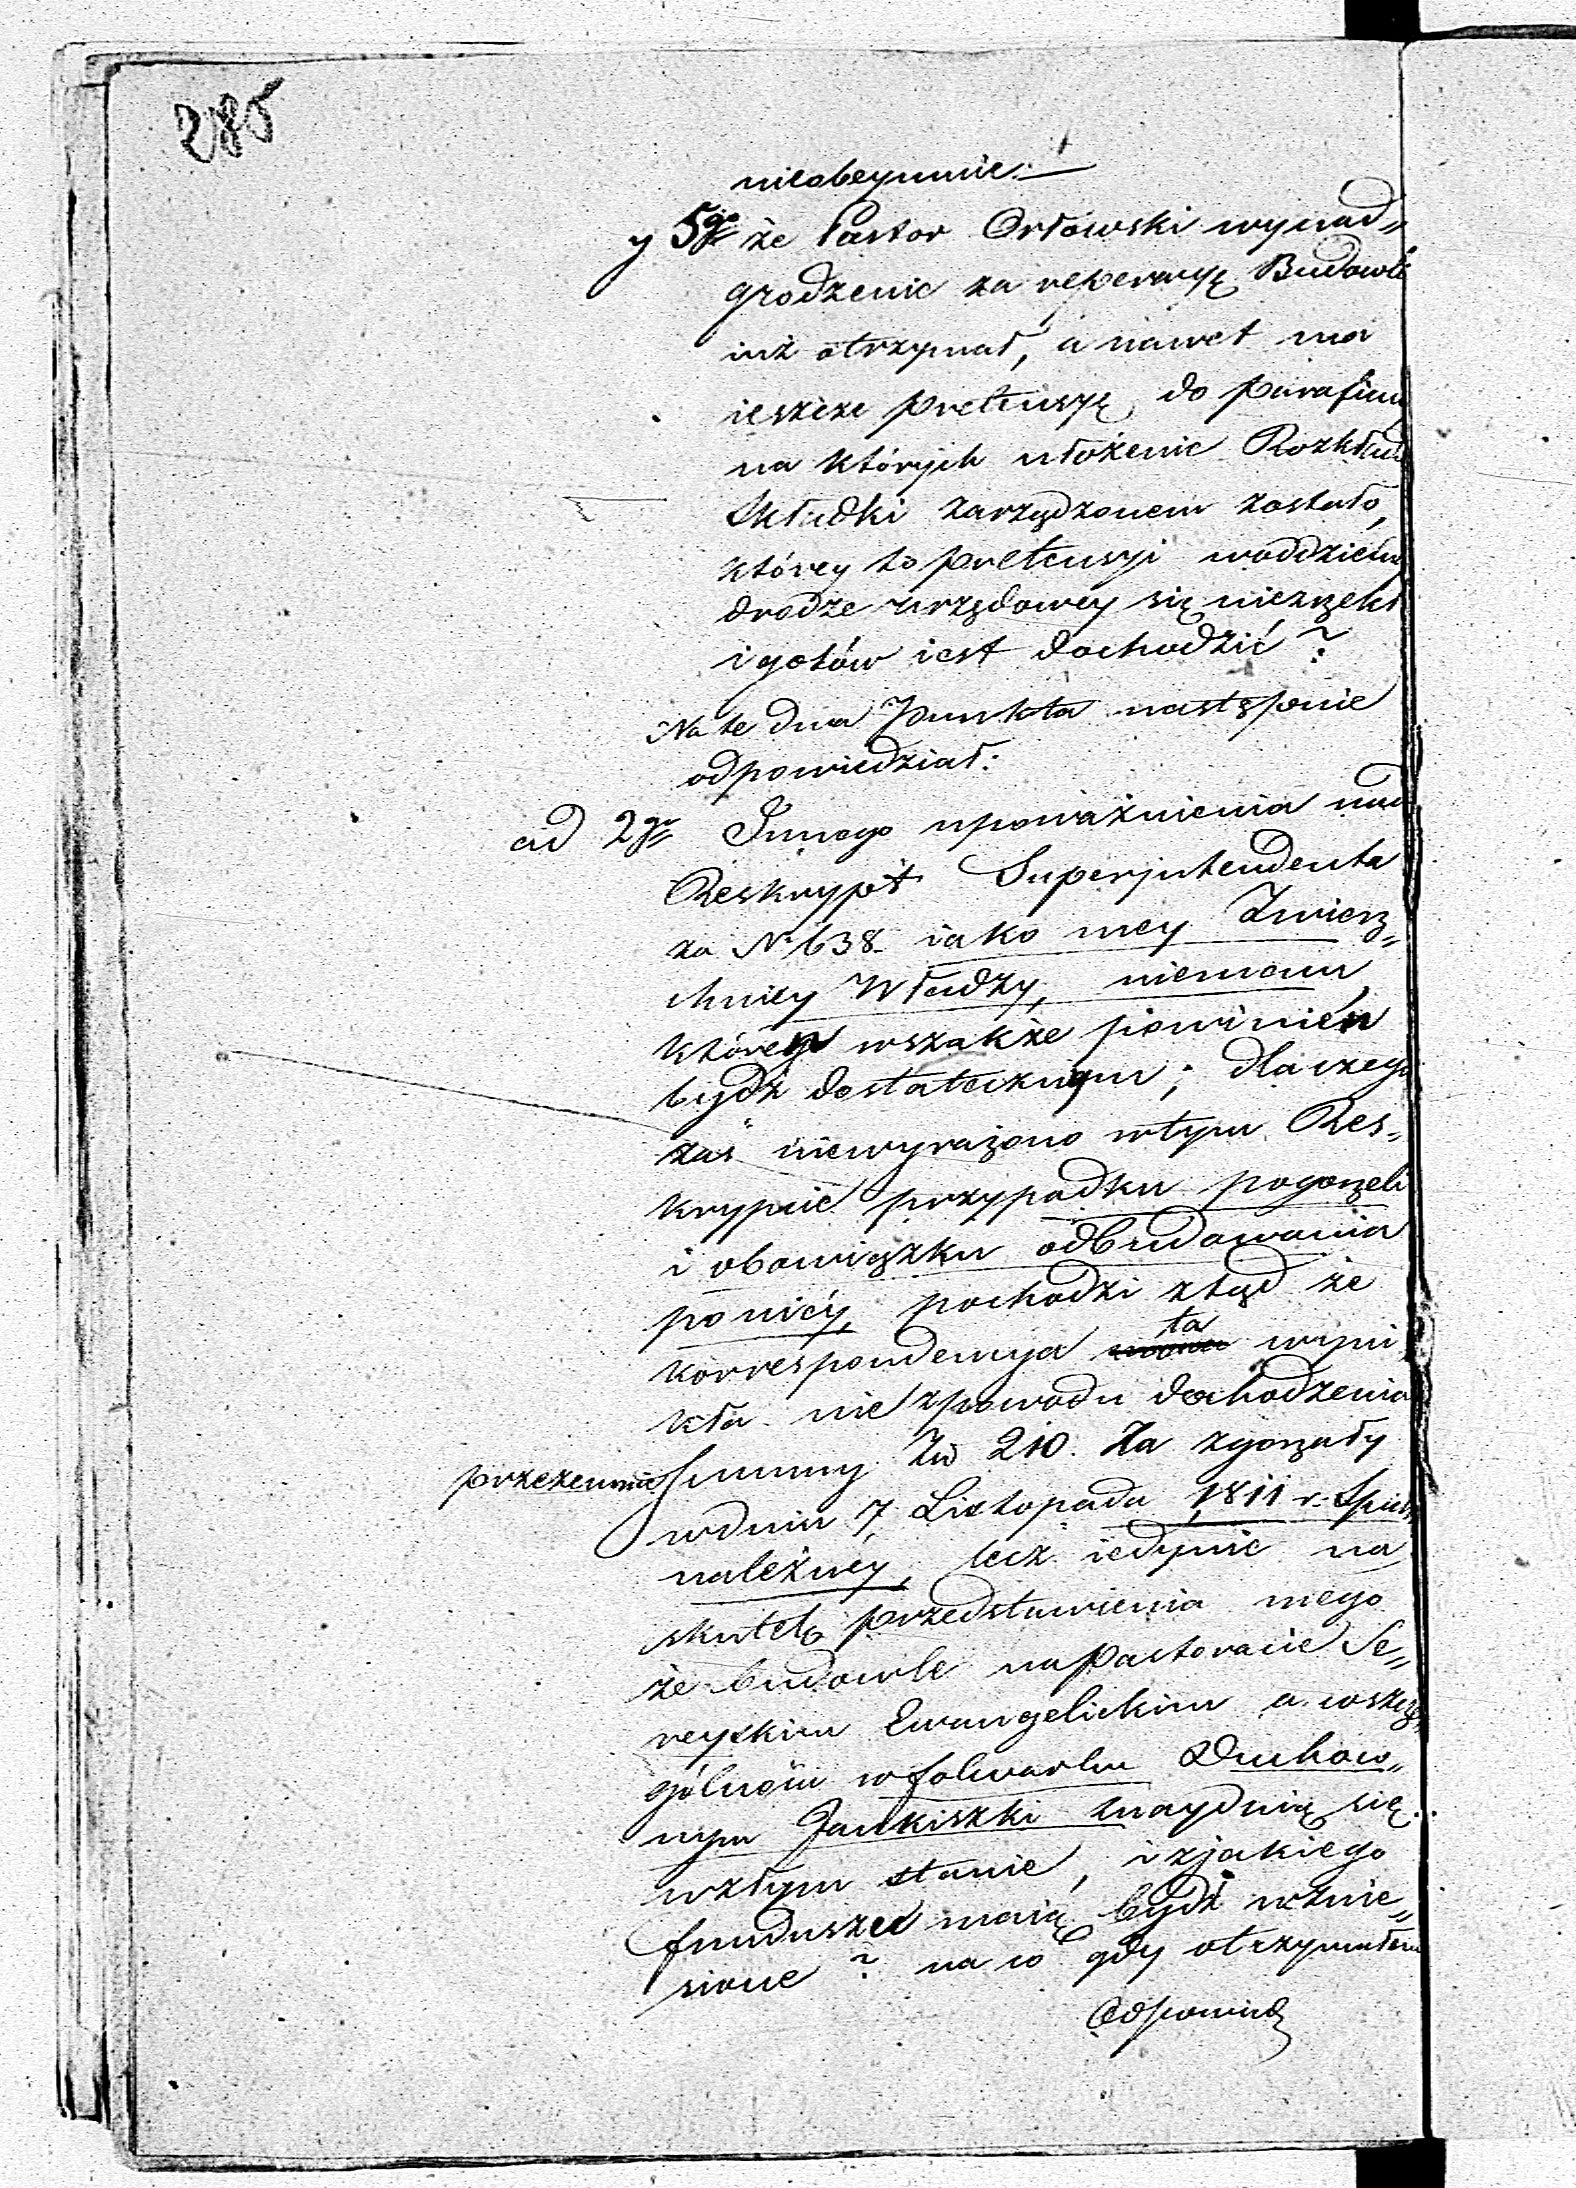 285
nieobeymuie. —
y 5go że Pastor Orłowski wynad„
grodzenie za reperacyę Budowli
iuż otrzymał, a nawet ma
ieszcze pretensyę do parafian
na których ułożenie Rozkładu
Składki zarządzonem zostało,
którey to pretensyi woddzielney
drodze urzędowey się niezrzekł
i gotów iest dochodzić?
Na te dwa Punkta następnie
odpowiedział:
ad 2go Innego upoważnienia nad
Reskrypt Superjntendenta
za No 638 iako mey Zwierz„
chniey Władzy, niemam
który wszakże powinień
bydź dostatecznym; dlaczego
zaś niewyrażono wtym Res„
krypcie przypadku pogorzeli
i obowiązku odbudowania
poniéy, pochodzi ztąd że
korrespondencya ta wyni„
kła nie zpowodu dochodzenia
przezemnie Summy Zło 210. Za zgorzały
wdniu 7 Listopada 1811 r. Spich„
należnéy, lecz iedynie na
skutek przedstawienia mego
że budowle na Pastoracie Se„
reyskim Ewangelickim a wszcze„
gólności w folwarku Duchow„
nym Jankiszki znayduią się
wzłym stanie, i zjakiego
funduszu maią bydź wznie„
sione? na co gdy otrzymałem
Odpowiedź